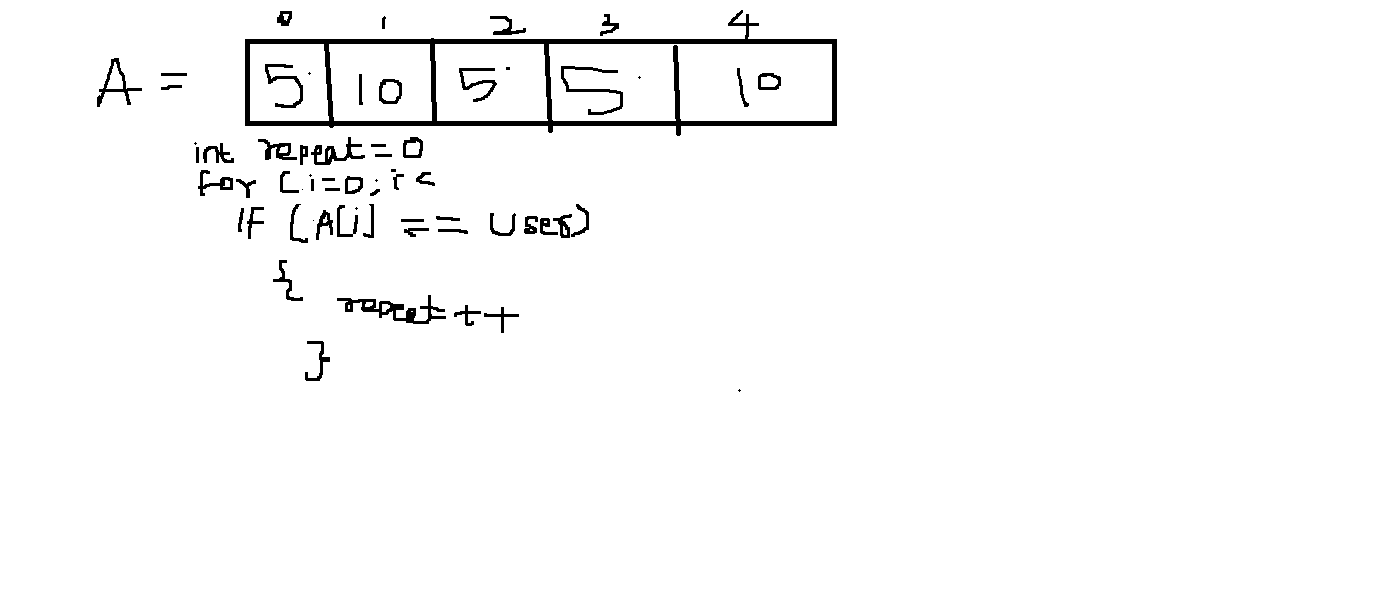 0 1 2 3 4
A = 5 10 5 5 10
int repeat = 0
for (i=0; i <
IF (A[i] == User)
{
repeat ++
}